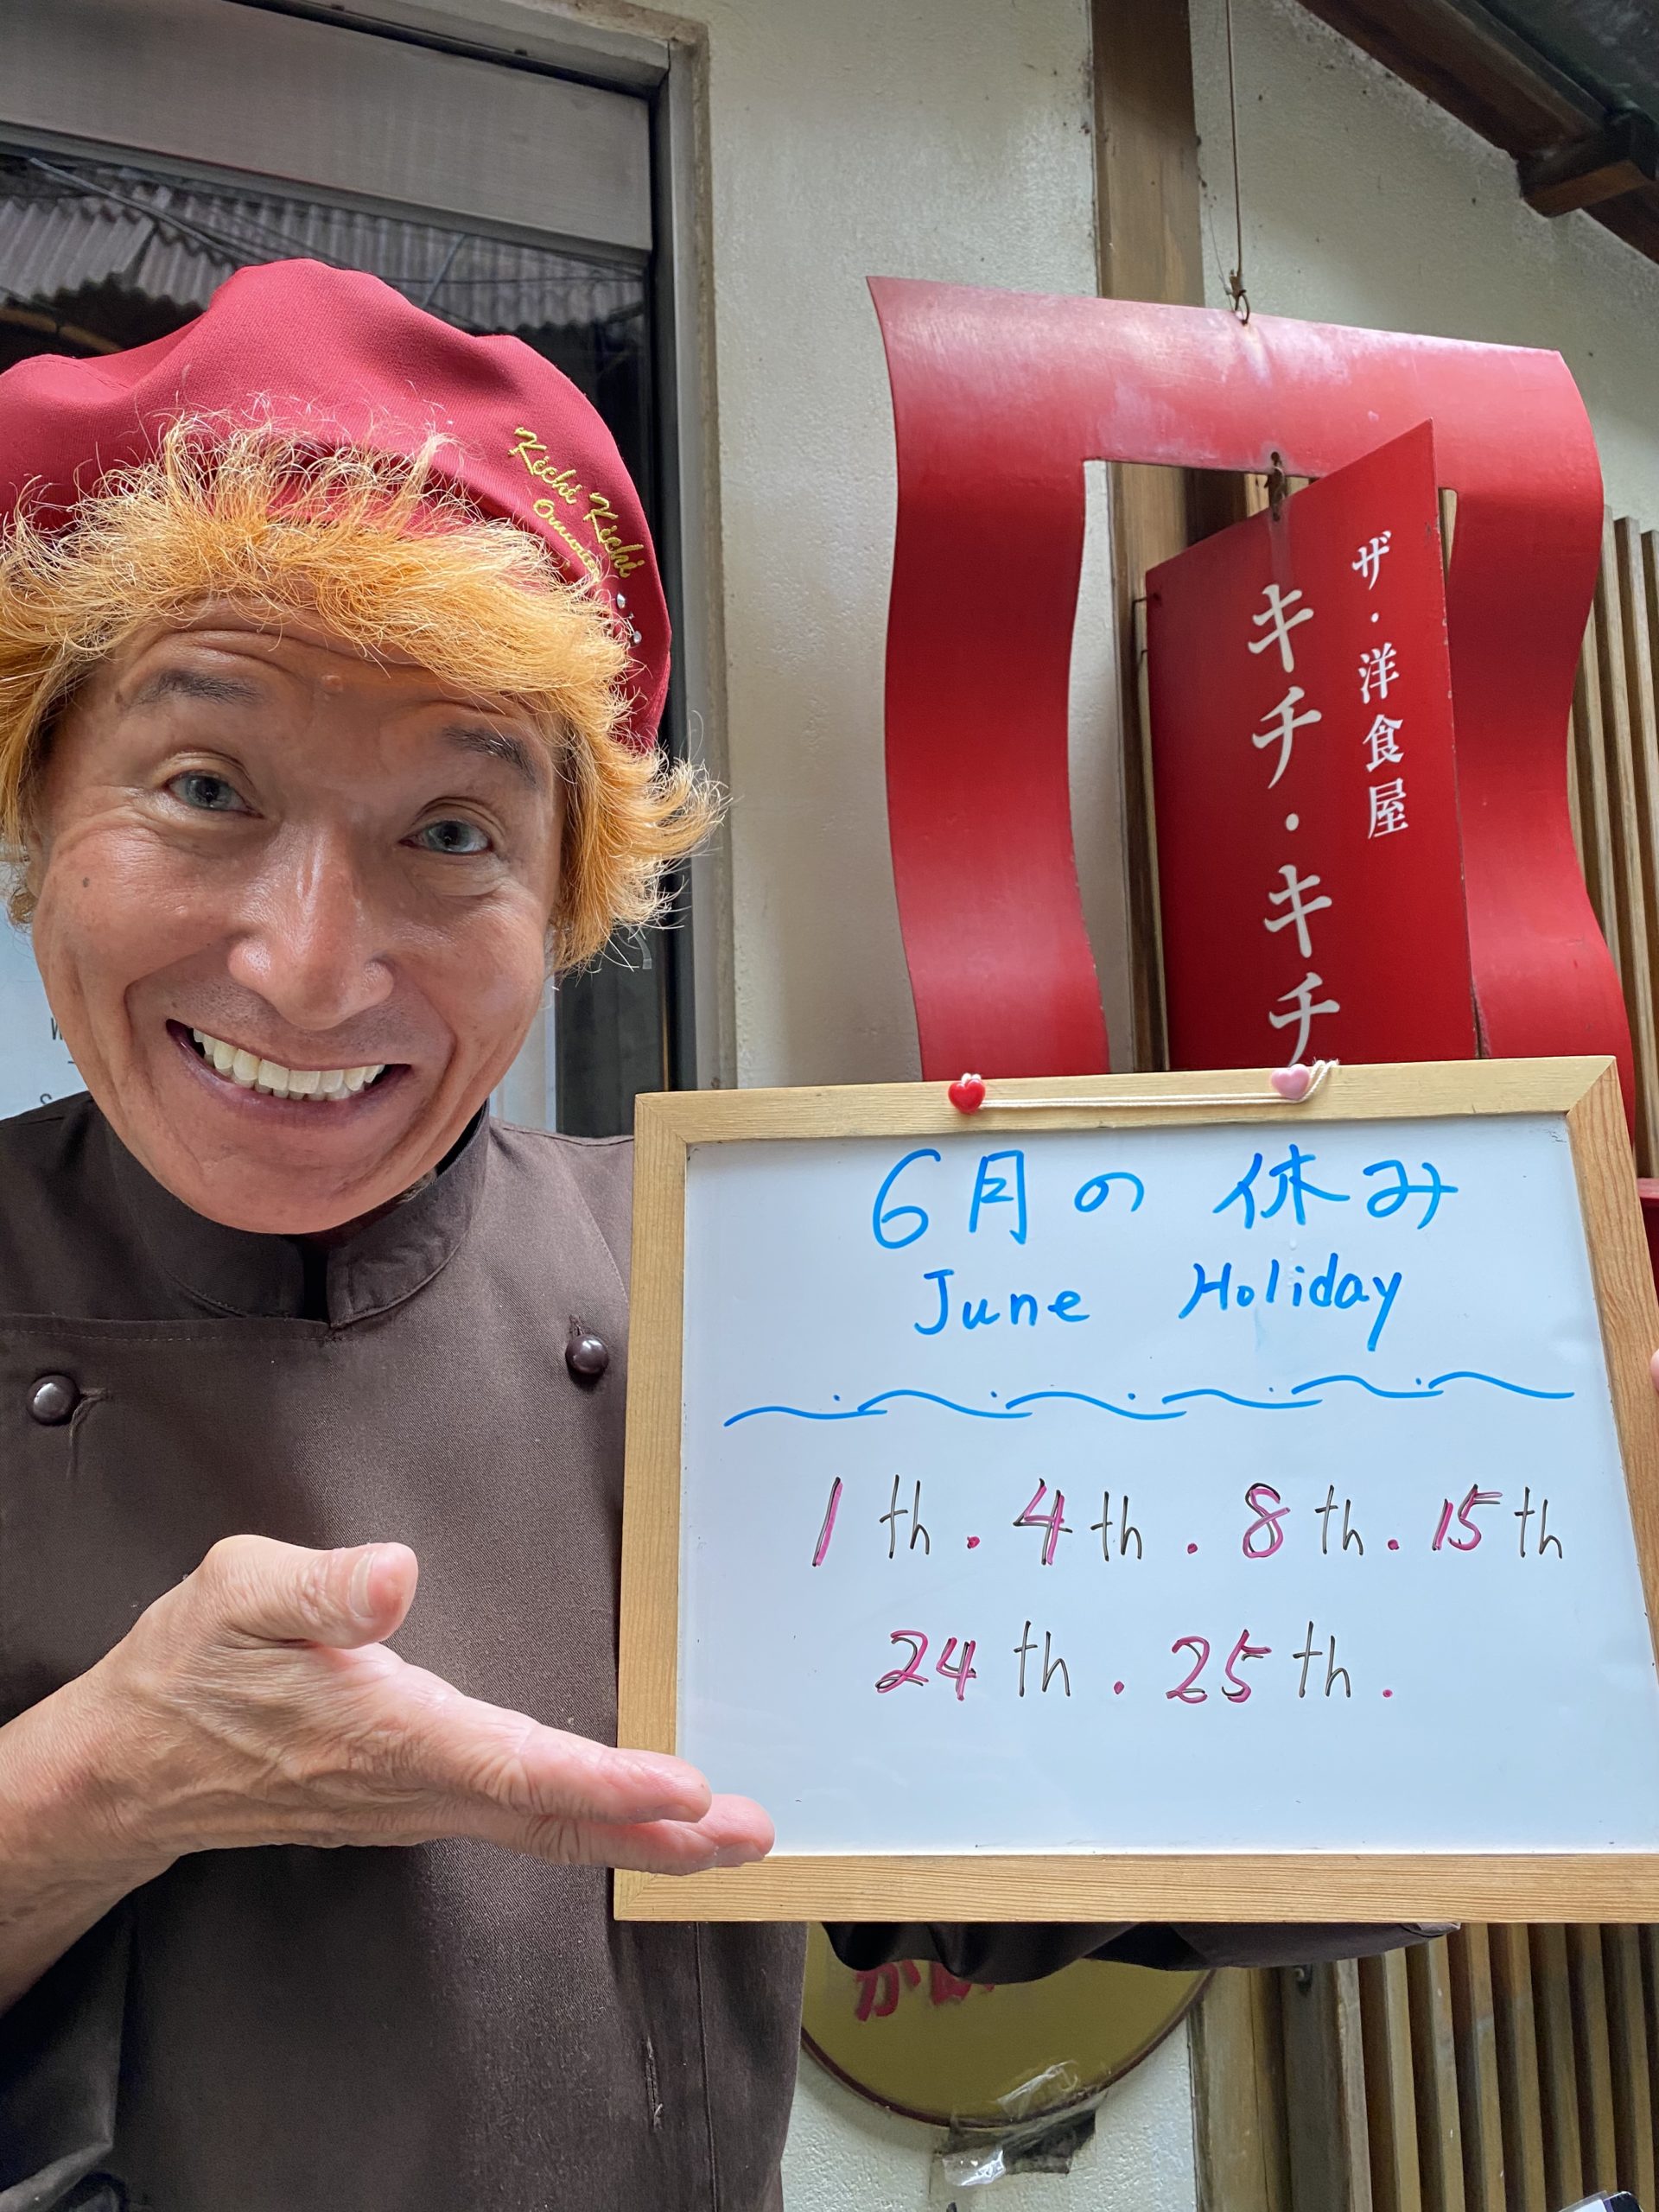 Kichi Kichi
ザ・洋食屋
キチ・キチ
6月の休み
June Holiday
1th.4th.8th.15th
24th.25th.